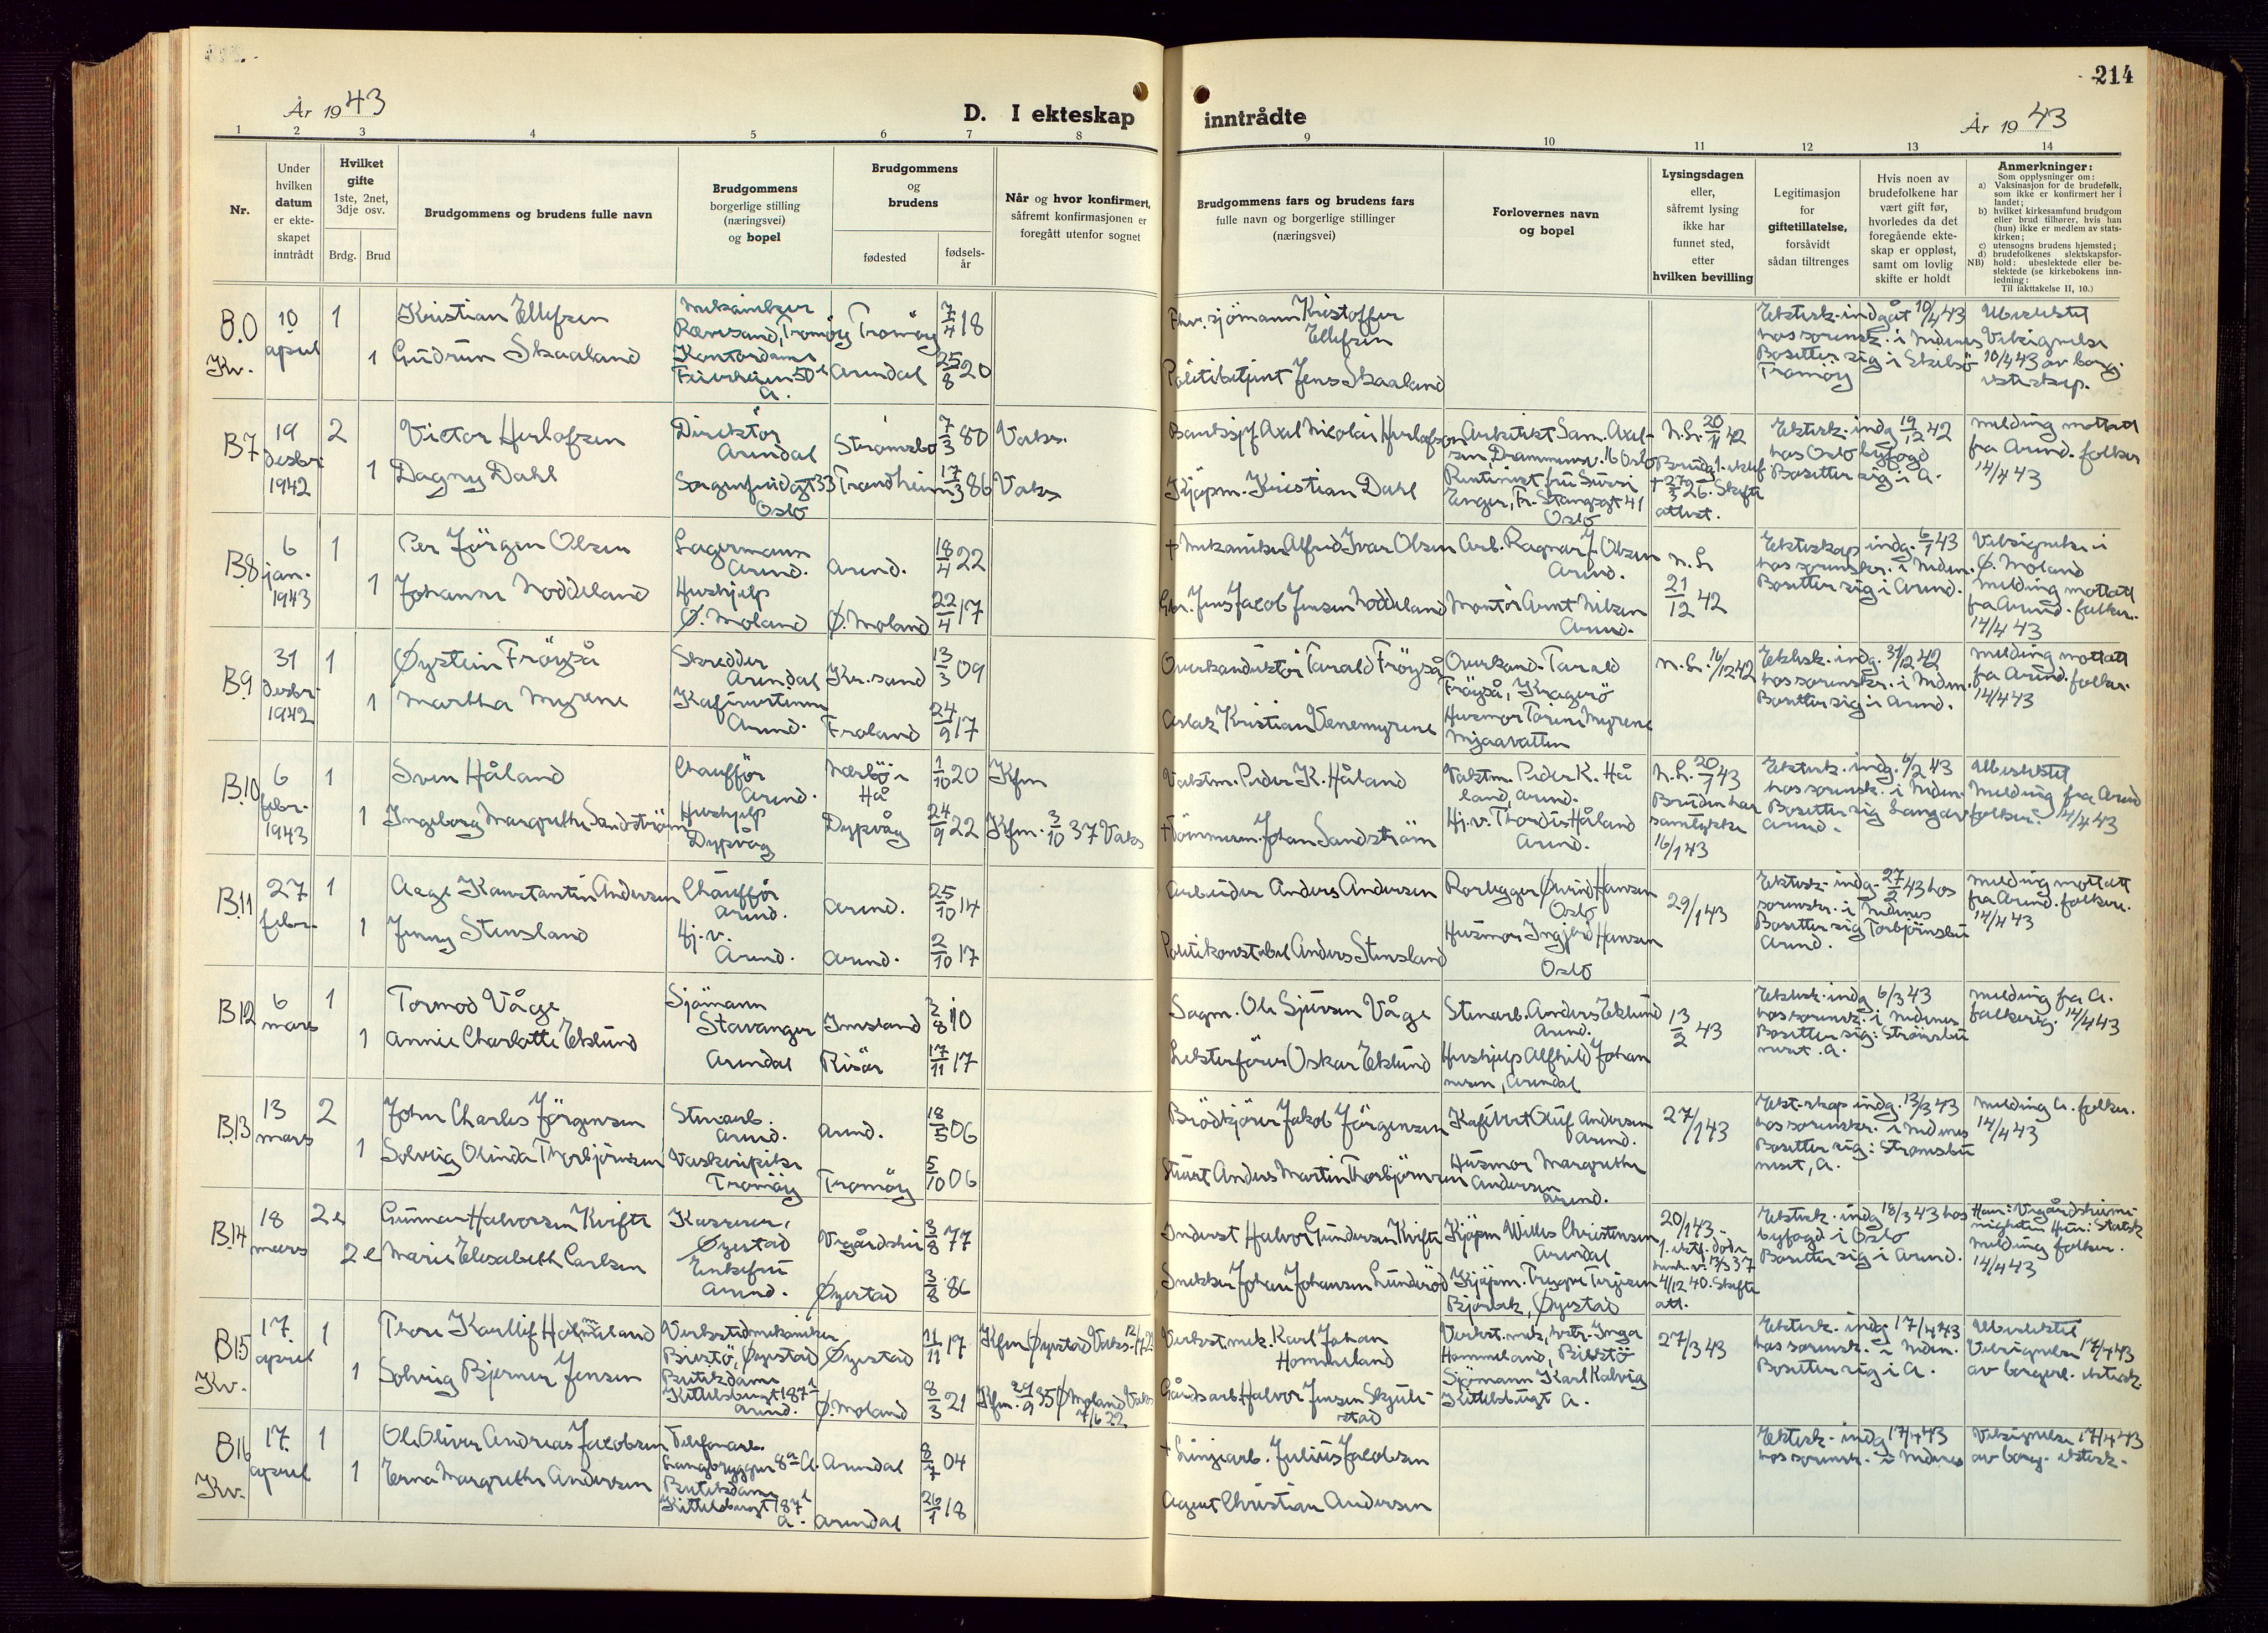 214
År 1943
D. I ekteskap inntrådte
År 1943
1 2 3 4 5 6 7 8 9 10 11 12 13 14
Nr.
Under
hvilken
datum
er ekte-
skapet
inntrådt
Hvilket
gifte
1ste, 2net,
3dje osv.
Brdg. Brud
Brudgommens og brudens fulle navn
Brudgommens
borgerlige stilling
(næringsvei)
og bopel
Brudgommens
og
brudens
fødested
fødsels-
år
Når og hvor konfirmert,
såfremt konfirmasjonen er
foregått utenfor sognet
Brudgommens fars og brudens fars
fulle navn og borgerlige stillinger
(næringsvei)
Forlovernes navn
og bopel
Lysingsdagen
eller,
såfremt lysing
ikke har
funnet sted,
etter
hvilken bevilling
Legitimasjon
for
giftetillatelse,
forsåvidt
sådan tiltrenges
Hvis noen av
brudefolkene har
vært gift før,
hvorledes da det
foregående ekte-
skap er oppløst,
samt om lovlig
skifte er holdt
Anmerkninger:
Som opplysninger om:
a) Vaksinasjon for de brudefolk,
som ikke er konfirmert her i
landet;
b) hvilket kirkesamfund brudgom
eller brud tilhører, hvis han
(hun) ikke er medlem av stats-
kirken;
c) utensogns brudens hjemsted;
d) brudefolkenes slektskapsfor-
NB) hold: ubeslektede eller be-
slektede (se kirkebokens inn-
ledning:
Til iakttakelse II, 10.)
B.0
Kv.
10
april
1
1
Kristian Ellefsen
Gudrun Skaaland
Mekaniker
Revesand, Tromøy
Kontordame
Tromøy
Arendal
7/4 18
25/8 20
sjømann Kristoffer
Ellefsen
Politibetjent Jens Skaaland
Ektesk. indgåt 10/4 43
hos sorensk. i Nedenes
Bosetter sig i Skilsö
Tromöy
Ubeslektet
Velsignelse
10/4 43 av borg.
ekteskap.
B7
19
desbr.
1942
2
1
Victor Herlofsen
Dagny Dahl
Direktör
Arendal
Sorgenfridgt 33
Oslo
Strømsbo
Trondheim
7/3 80
17/3 86
Vaks.
Vaks
Banksjef Axel Nicolai Herlofson
Kjøpm. Kristian Dahl
Arkitekt Sam. Axel-
sen, Drammensv. 16 Oslo
Rentenist fru Sussi
Enger, Fr. Stangsgt 41
Oslo
N.L. 20/11 42
26. Skifte
attest.
Ektesk. indg 19/12 42
hos Oslo byfogd
Bosetter sig i A.
Melding mottatt
fra Arend. folker
14/4 43
B8
6
jan.
1943
1
1
Per Jörgen Olsen
Johanne Noddeland
Lagermann
Arend.
Hushjelp
Ø. Moland
Arend.
Ø. Moland
18/4 22
22/4 17
+ Mekaniker Alfred Ivar Olsen
Gbr. Jens Jacob Jensen Noddeland
Arb. Ragnar J. Olsen
Arend.
Montör Arnt Nilsen
Arend.
N.L
21/12 42
Ekteskap indg. 6/1 43
hos sorenskr. i Neden.
Bosetter sig i Arend.
Velsignelse i
Ø. Moland
Melding mottatt
fra Arend. folker.
14/4 43
B9
31
desbr.
1942
1
1
Øystein Fröyså
Martha Myrene
Skredder
Arendal
Kafévertinne
Arend.
Kr.sand
Froland
13/3 09
24/9 17
Overkonduktör Tarald Fröyså
Aslak Kristian Venemyrene
Overkond. Tarald
Fröyså, Kragerö
Husmor Torine Myrene
Mjaavatten
N.L. 16/12 42
Ektesk. indg. 31/12 42
hos sorenskr. i Neden.
Bosetter sig i Arend.
Melding mottatt
fra Arend. folker.
14/4 43
B.10
6
febr.
1943
1
1
Sven Håland
Ingeborg Margrethe Sandström
Chauffør
Arend.
Hushjelp
Dypvåg
Nærbö i
Hå
Dypvåg
1/10 20
24/9 22
Kfm
Kfm. 3/10 37 Vaks
Vaktm. Peder K. Håland
+ Tömmerm. Johan Sandström
Vaktm. Peder K. Hå
land, Arend.
Hj.v. Thordis Håland
Arend.
N.L. 20/1 43
Bruden har
samtykke
16/1 43
Ektesk. indg. 6/2 43
hos sorensk. i Neden.
Bosetter sig
Arend.
Ubeslektet
Melding fra Arend
folker. 14/4 43
B.11
27
febr.
1
1
Aage Konstantin Andersen
Jenny Stensland
Chauffør
Arend.
Hj.v.
Arend.
Arend.
Arend.
25/10 14
2/10 17
Arbeider Anders Andersen
Politikonstabel Anders Stensland
Rørlegger Øivind Hansen
Oslo
Husmor Ingjerd Hansen
Oslo
29/1 43
Ektesk. indg. 27/2 43 hos
sorenskr. i Nedenes
Bosetter sig Torbjörnsbu
Arend.
Melding mottatt
fra Arend. folker.
14/4 43
B.12
6
mars
1
1
Tormod Våge
Annie Charlotte Eklund
Sjömann
Stavanger
Arendal
Imsland
Risör
2/8 10
17/11 17
Sagm. Ole Sjursen Våge
Lekterförer Oskar Eklund
Stenarb. Anders Eklund
Arend.
Hushjelp Alfhild Johan
nesen, Arendal
13/2 43
Ektesk. indg 6/3 43
hos sorensk. i Nedenes
Bosetter sig: Strömsbu
neset. A.
Melding fra A.
folkereg. 14/4 43
B.13
13
mars
2
1
John Charles Jörgensen
Solveig Olinda Thorbjörnsen
Stenarb.
Arend.
Vaskeripike
Tromøy
Arend.
Tromöy
18/5 06
5/10 06
Brödkjörer Jakob Jörgensen
Stuert Anders Martin Thorbjörnsen
Kafévert Oluf Andersen
Arend.
Husmor Margrethe
Andersen
Arend.
27/1 43
Ekt.skap indg. 13/3 43
hos sorenskr. i Nedenes
Bosetter sig: Strömsbu
neset, A.
Melding A. folker.
14/4 43
B.14
18
mars
2 e
2 e
Gunnar Halvorsen Kvifte
Marie Elisabeth Carlsen
Kasserer,
Øyestad
Enkefru
Arend.
Vegårdshei
Øyestad
3/8 77
3/8 86
Inderst Halvor Gundersen Kvifte
Snekker Johan Johansen Lunderöd
Kjøpm Willes Christensen
Arendal
Kjøpm. Trygve Terjesen
Bjorbæk, Øyestad
20/1 43.
4/12 40. Skifte
att.
Ektesk. indg 18/3 43 hos
byfogd i Oslo
Bosetter sig i Arend.
Han: Vegårdshei me-
nigheten Hun: Statsk
Melding folker.
14/4 43
B15
Kv.
17.
april
1
1
Thore Karllif Hommeland
Solveig Bjerner Jensen
Verkstedmekaniker
Bisstö, Øyestad
Butikdame
Kittelsbugt 187
Arend.
Øyestad
Ø. Moland
11/11 17
8/3 21
Kfm Øyestad Vaks.
Kfm. 29/9 35 Ø Moland Vaks
7/6 22
Verkst.mek. Karl Johan
Hommeland
Gårdsarb. Halvor Jensen Skjuli-
stad
Verkst. mek. Inga
Hommeland,
Sjömann Karl Kalvig
Kittelsbugt A.
27/3 43
Ektesk. indg 17/4 43
hos sorensk. i Neden.
Bosetter sig i A.
Ubeslektet
Velsignelse 17/4 43
av borgerl. ektesk.
B16
Kv.
17.
april
1
1
Ole Oliver Andreas Jacobsen
Erna Margrethe Andersen
Telefonarb.
Langbryggen 8a A.
Butikdame
Kittelsbugt 187
A.
Arendal
Arendal
8/7 04
26/1 18
+ Linjearb. Julius Jacobsen
Agent Christian Andersen
Ektesk. indg 17/4 43
hos sorensk. i Nedenes
Velsignelse 17/4 43
av borg. ektesk.